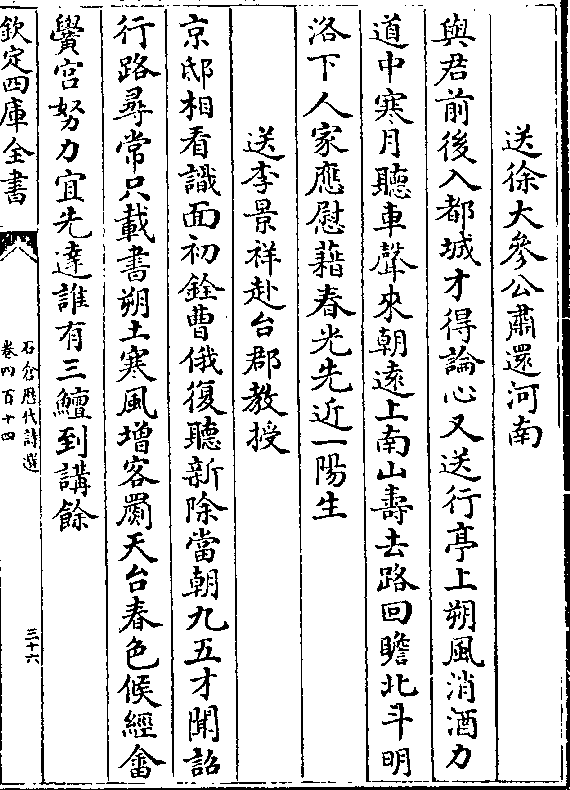 送徐大參公肅還河南
與君前後入都城才得論心又送行亭上朔風消酒力
道中寒月聽車聲來朝遠上南山壽去路回瞻北斗明
洛下人家應慰藉春光先近一陽生
送李景祥赴台郡教授
京邸相看識面初銓曹俄復聽新除當朝九五才聞詔
行路尋常只載書朔土寒風增客罽天台春色候經畬
黌宫努力宜先達誰有三鱣到講餘
欽定四庫全書
石倉歴代詩選
卷四百十四
三十六